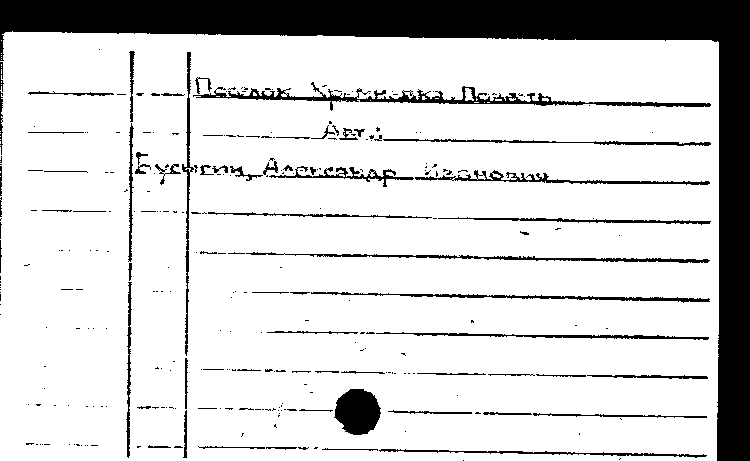 Поселок Кремневка. Повесть
Авт.:
Бусыгин, Александр Иванович